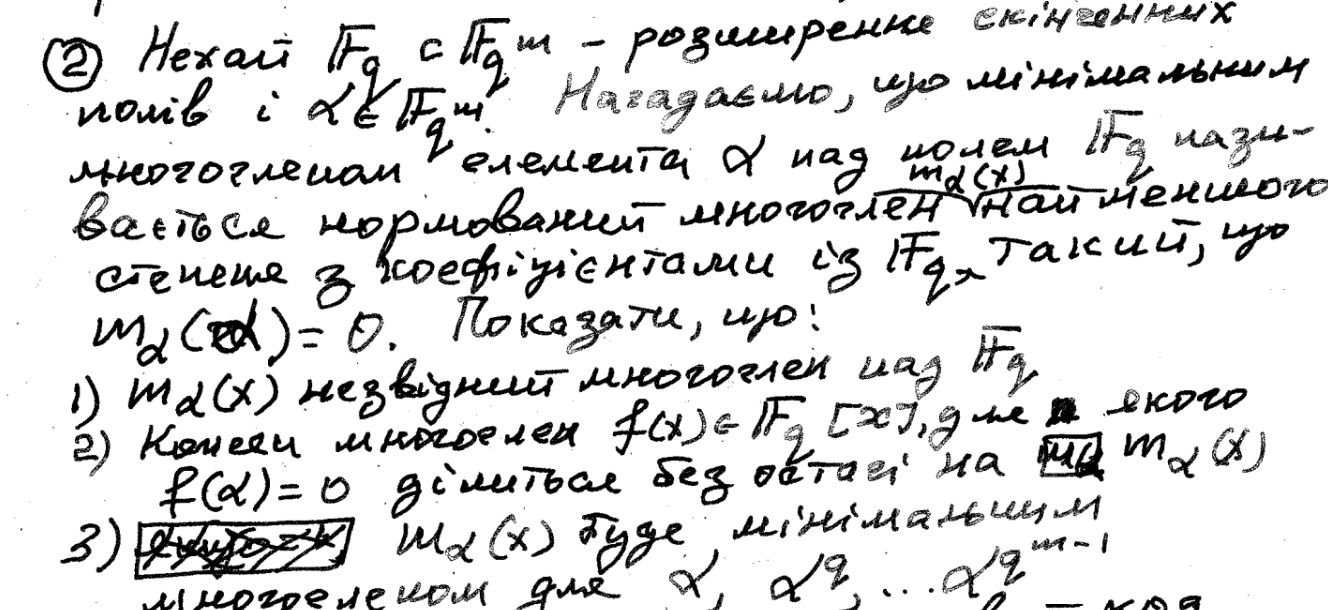 ② Нехай 𝔽_q ⊂ 𝔽_q^m – розширення скінченних
полів і α ∈ 𝔽_q^m. Нагадаємо, що мінімальним
многочленом елемента α над полем 𝔽_q нази-
вається нормований многочлен m_α(x) найменшого
степеня з коефіцієнтами із 𝔽_q, такий, що
m_α(α) = 0. Показати, що:
1) m_α(x) незвідний многочлен над 𝔽_q
2) Кожен многочлен f(x) ∈ 𝔽_q[x], для якого
f(α) = 0 ділиться без остачі на m_α(x)
3) m_α(x) буде мінімальним
многочленом для α, α^q, ... α^q^m-1